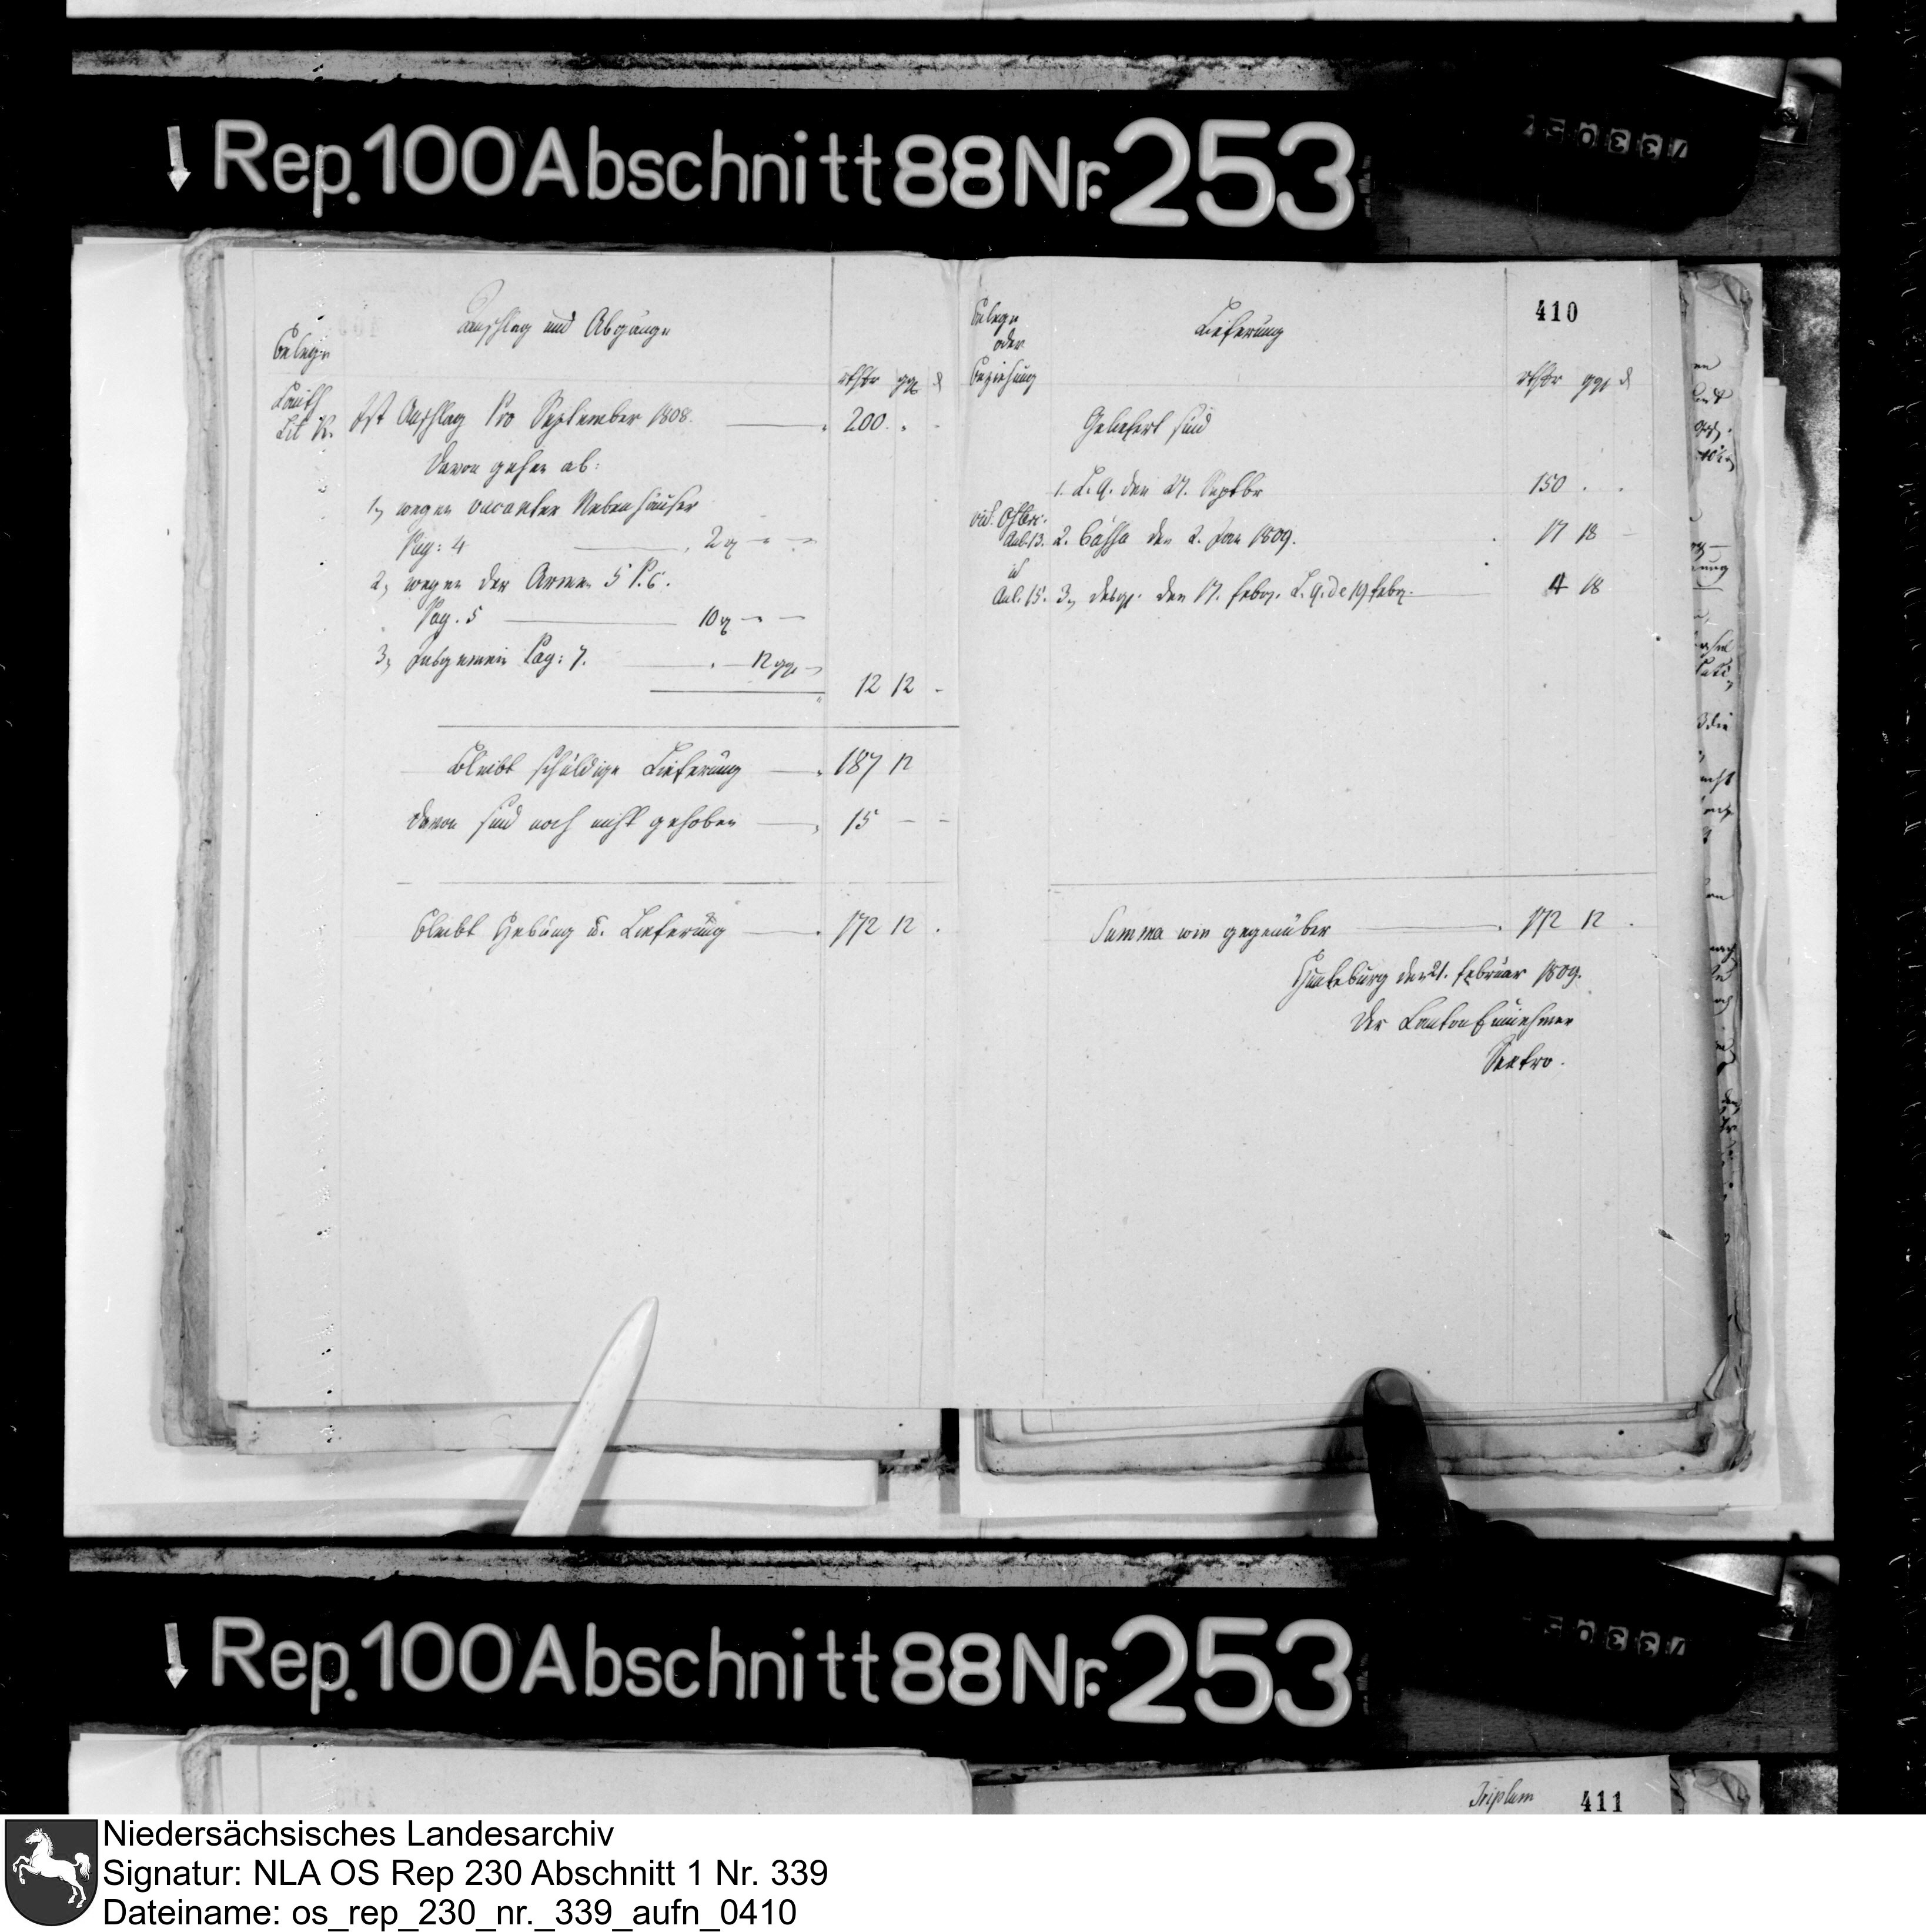 Rep. 100 Abschnitt 88 Nr. 253
Belege
Anschlag und Abgänge
rthlr ggr d
Lit K. Ist Anschlag Pro September 1808. 200. . -
Davon gehen ab:
1, wegen vacanter Nebenhäuser
Pag: 4 2 r - -
2, wegen der Armen 5 P.C.
Pag. 5 10 r - -
3, Insgemein Pag: 7. - 12 ggr -
12 12 -
Bleibt schuldige Lieferung 187 12
Davon sind noch nicht gehoben 15 - -
Bleibt Hebung u. Lieferung 172 12 .
410
Belege
oder
Beziehung
Lieferung
rthlr ggr d
Geliefert sind
1. L. Q. den 27. Septbr 150 . .
Anl. 13. 2. Cassa den 2. Jan 1809. 17 18 -
Anl. 15. 3, desgl. den 17. febr. L. Q. de 19 febr. 4 18
Summa wie gegenüber 172 12 .
Hunteburg den 21. Februar 1809.
Der Canton Einnehmer
Rep. 100 Abschnitt 88 Nr. 253
Triplum 411
Niedersächsisches Landesarchiv
Signatur: NLA OS Rep 230 Abschnitt 1 Nr. 339
Dateiname: os_rep_230_nr._339_aufn_0410